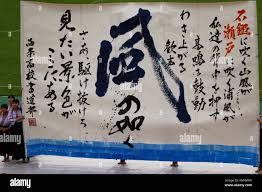 石鎚に吹く山風が
瀬戸に吹く浦風が
私達の背中を押す
高鳴る鼓動
わき上がる
風の如く
さあ駆け抜けろ
見たい景色が
そこにある
西条高校書道部
alamy